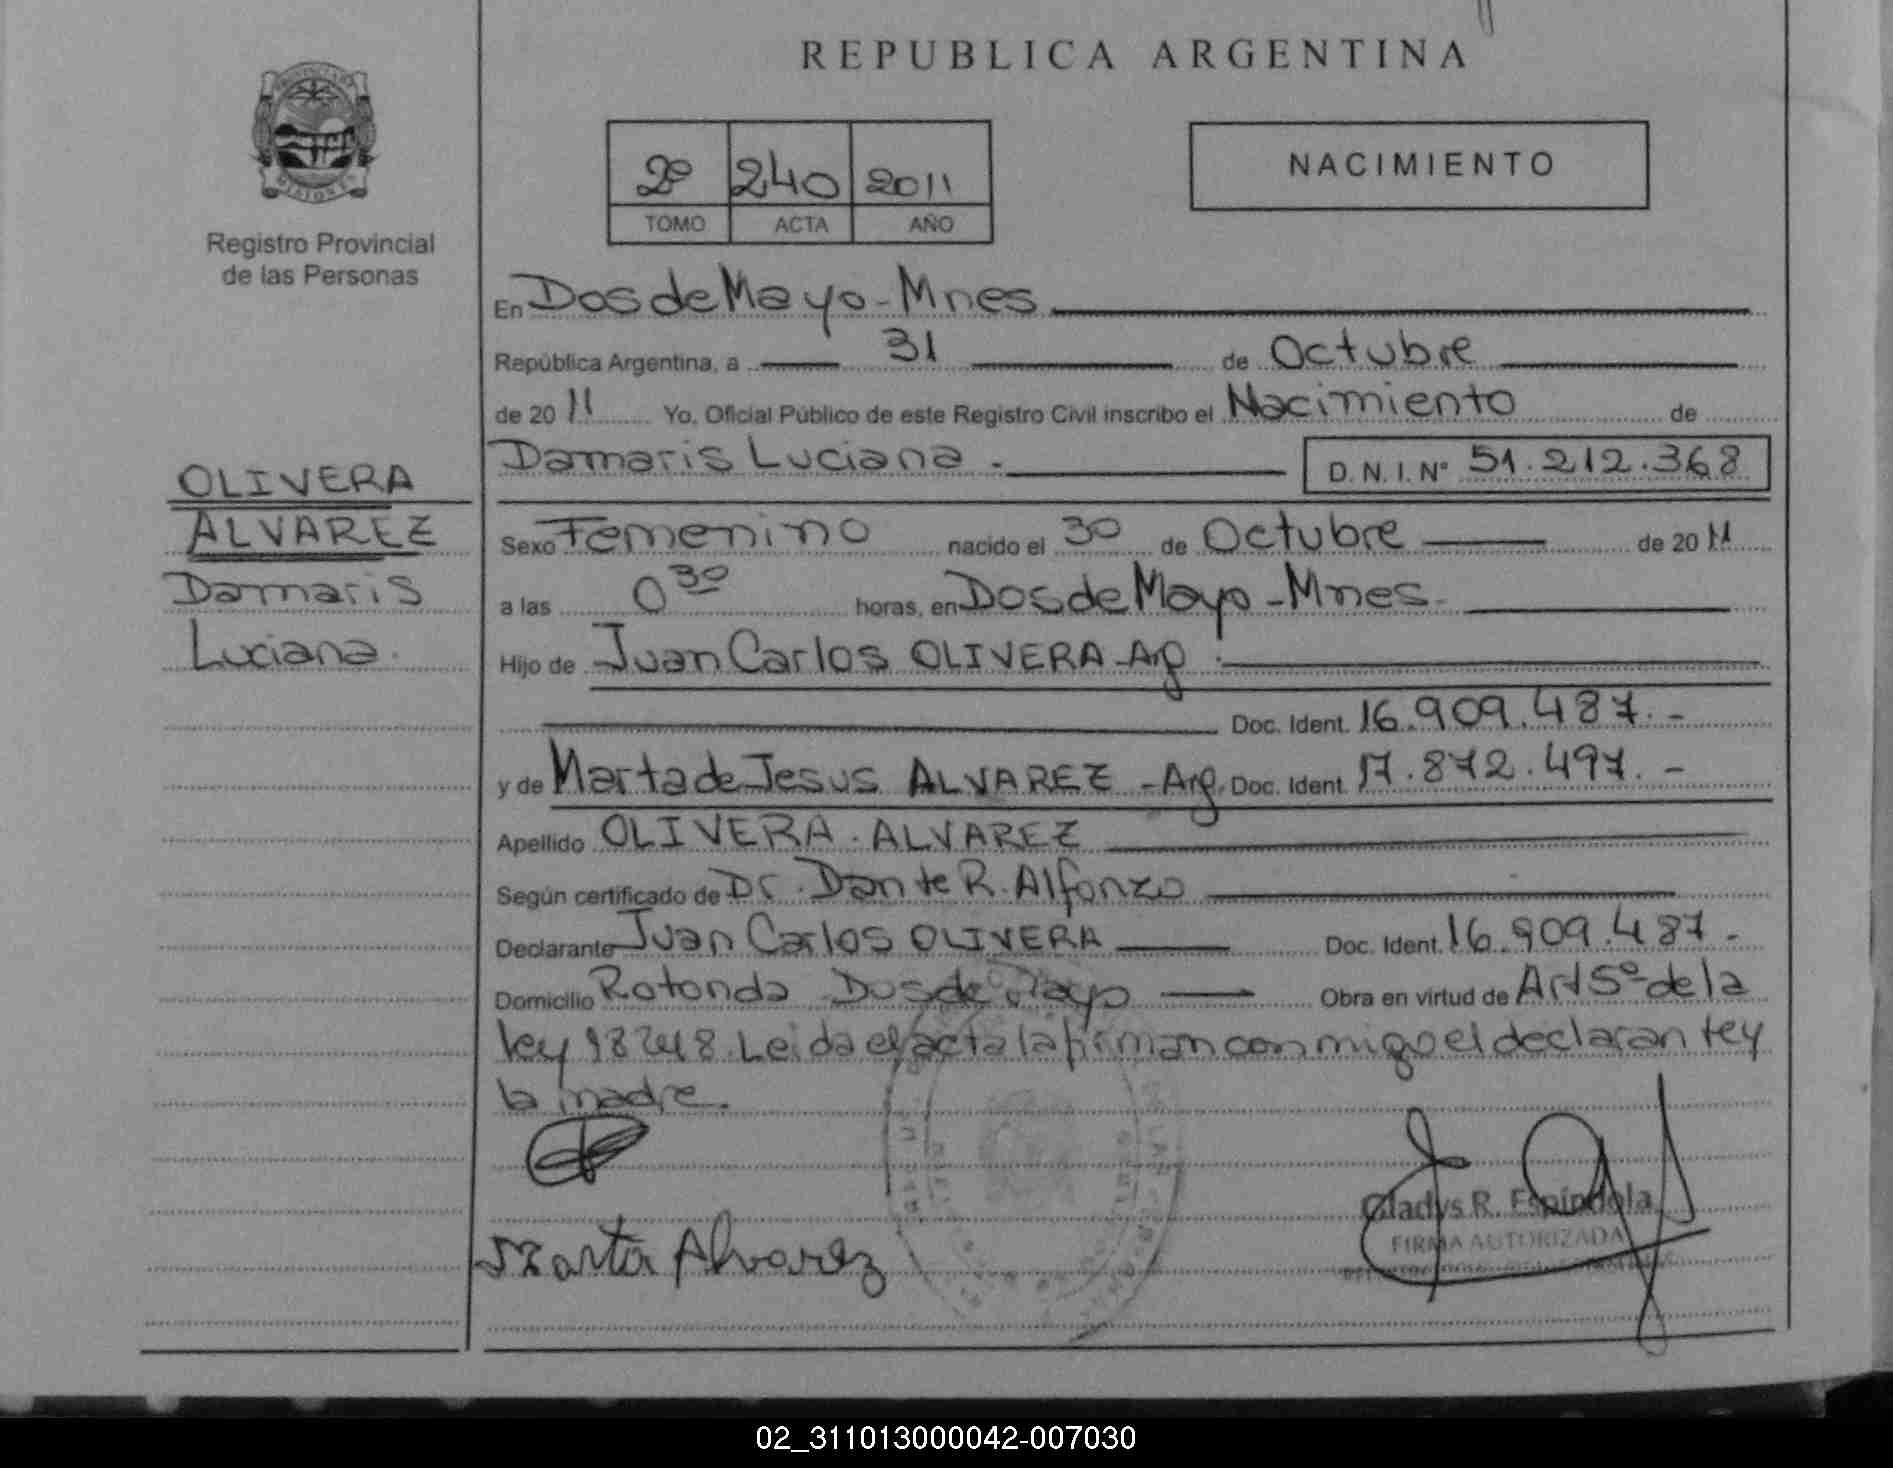 REPUBLICA ARGENTINA
PROVINCIA DE MISIONES
Registro Provincial
de las Personas
2º 240 2011
TOMO ACTA AÑO
NACIMIENTO
En Dos de Mayo - Mnes
República Argentina, a 31 de Octubre
de 20 11 Yo, Oficial Público de este Registro Civil inscribo el Nacimiento de
Damaris Luciana. D.N.I. Nº 51.212.368
OLIVERA
ALVAREZ
Damaris
Luciana.
Sexo Femenino nacido el 30 de Octubre de 20 11
a las 0 30 horas, en Dos de Mayo - Mnes.
Hijo de Juan Carlos OLIVERA - Arg.
Doc. Ident. 16.909.487.-
y de Marta de Jesus ALVAREZ - Arg. Doc. Ident. 17.872.497.-
Apellido OLIVERA. ALVAREZ
Según certificado de Dr. Dante R. Alfonzo
Declarante Juan Carlos OLIVERA Doc. Ident. 16.909.487.-
Domicilio Rotonda Dos de Mayo Obra en virtud de Art 5º de la
ley 18248. Leida el acta la firman conmigo el declarante y
la madre.
Marta Alvarez
Gladys R. Espíndola
FIRMA AUTORIZADA
02_311013000042-007030